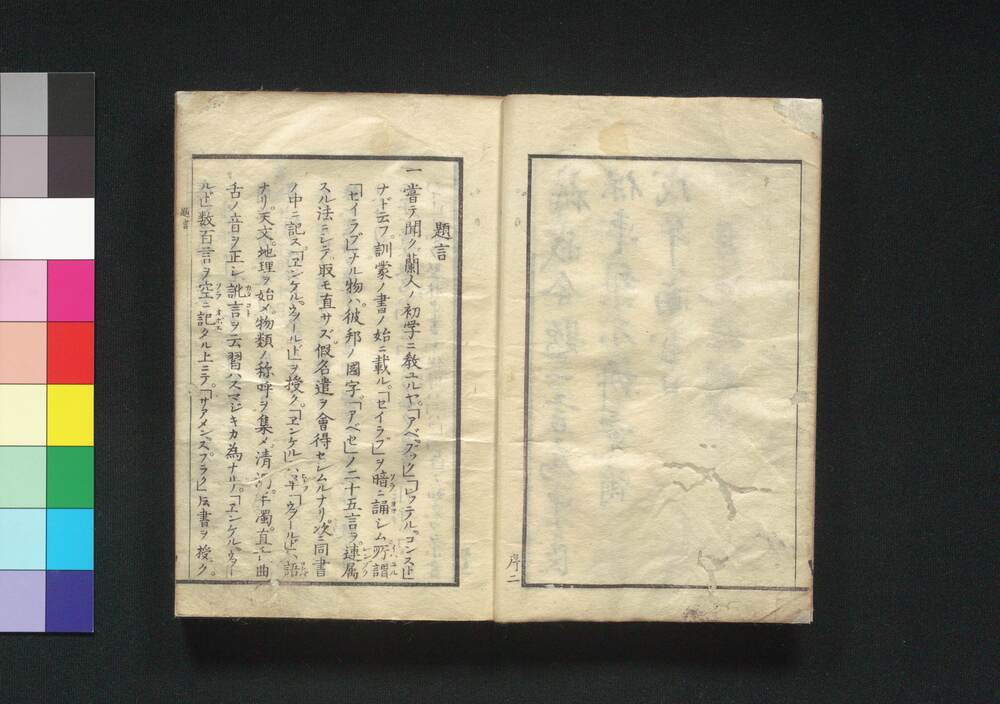 序二
題言
一嘗テ聞ク蘭人ノ初学ニ教ユルヤ「アベブック」「レッテルコンスト」
ナド云フ訓蒙ノ書ノ始ニ載ル「セイラブ」ヲ暗ニ誦シム所謂
「セイラブ」ナル物ハ彼邦ノ國字「アベセ」ノ二十五言ヲ連属
スル法ニシテ取モ直サズ假名遣ヲ會得セシムルナリ次ニ同書
ノ中ニ記ス「ヱンケルウヲールド」ヲ授ク「ヱンケル」ハ単「ウヲールド」ハ語
ナリ天文地理ヲ始メ物類ノ称呼ヲ集メ清濁直曲
舌ノ音ヲ正シ訛言ヲ云習ハスマジキカ為ナリ「ヱンケルウヲー
ルド」数百言ヲ空ニ記タル上ニテ「サアメンスプラク」ノ書ヲ授ク
題言